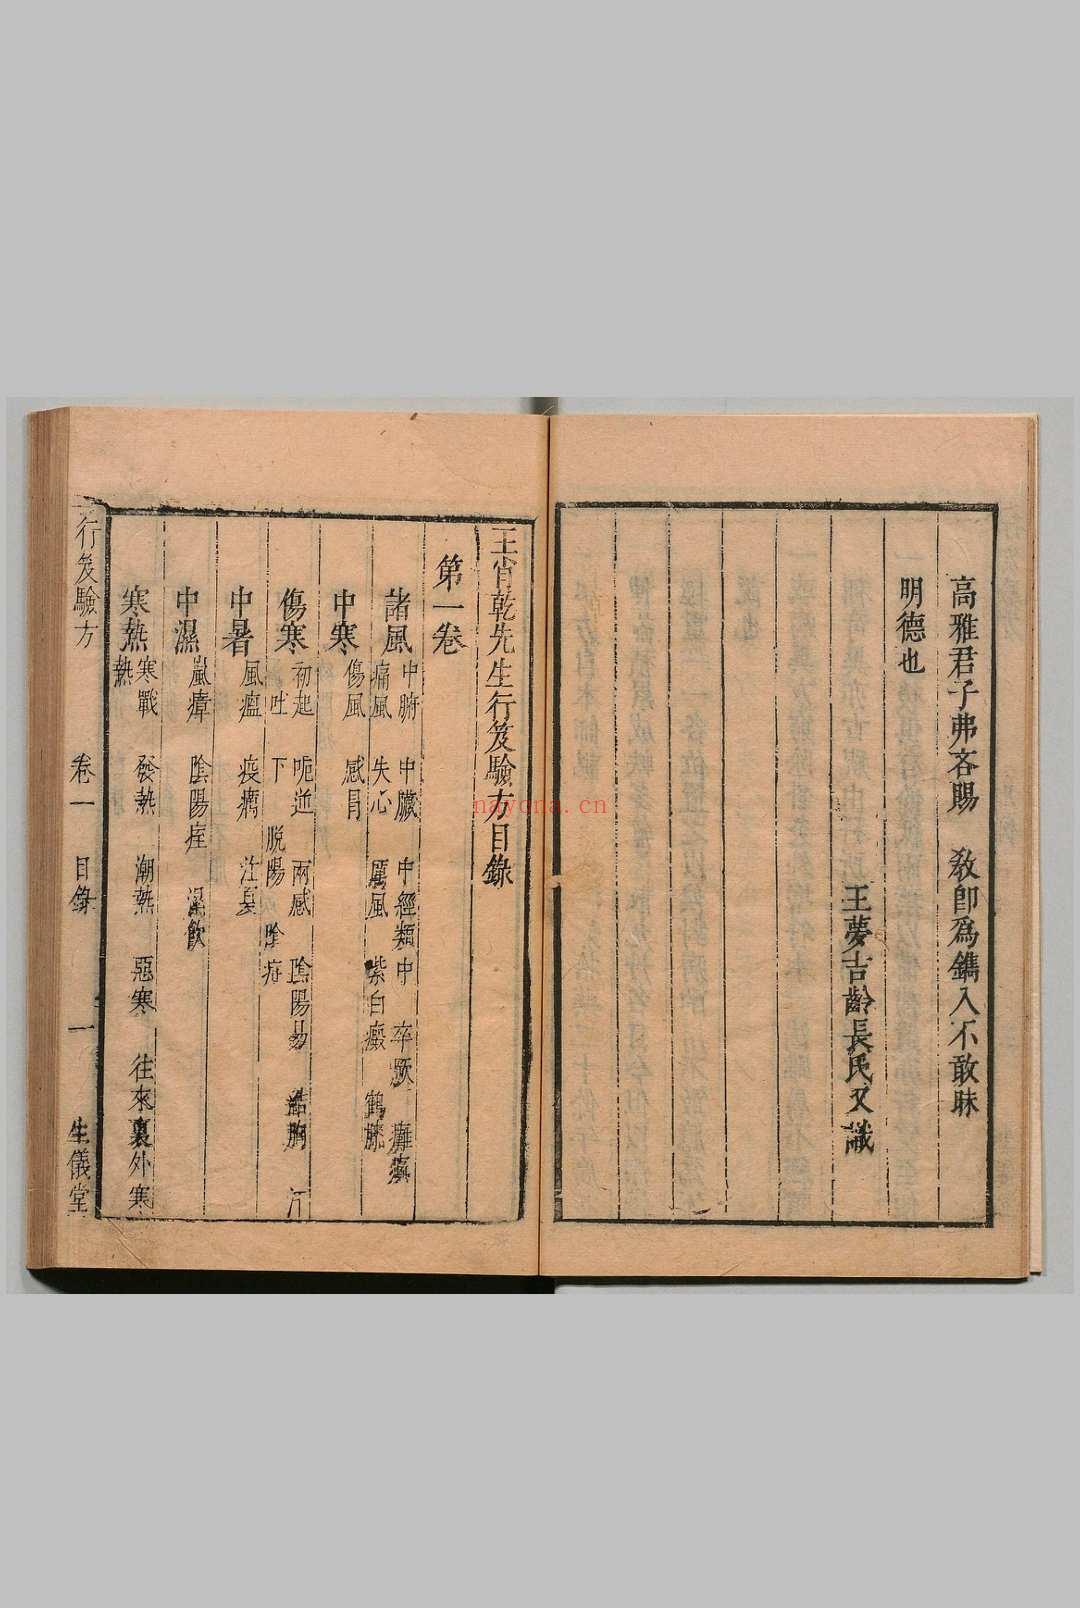 高雅君子弗吝賜　教即爲鐫入不敢昧
明德也
王夢吉齡長氏又識
王肯乾先生行笈驗方目錄
第一卷
諸風　中腑　中臟　中經類中　卒厥　癱瘓
痛風　失心　厲風　紫白癜　鶴膝
中寒　傷風　感冒
傷寒　初起　呃逆　兩感　陰陽易　結胸　汗
吐　下　脫陽　陰症
中暑　風瘟　疫癘　注夏
中濕　嵐瘴　陰陽痓　溪飲
寒熱　寒戰　發熱　潮熱　惡寒　往來裏外寒
熱
行笈驗方　卷一　目錄　一　生儀堂
nayona.cn